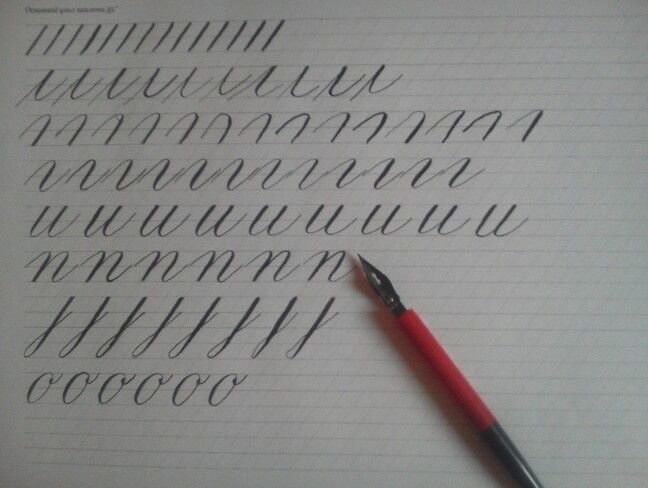 Основной угол наклона 55°
u u u u u u u u u
n n n n n n
o o o o o o